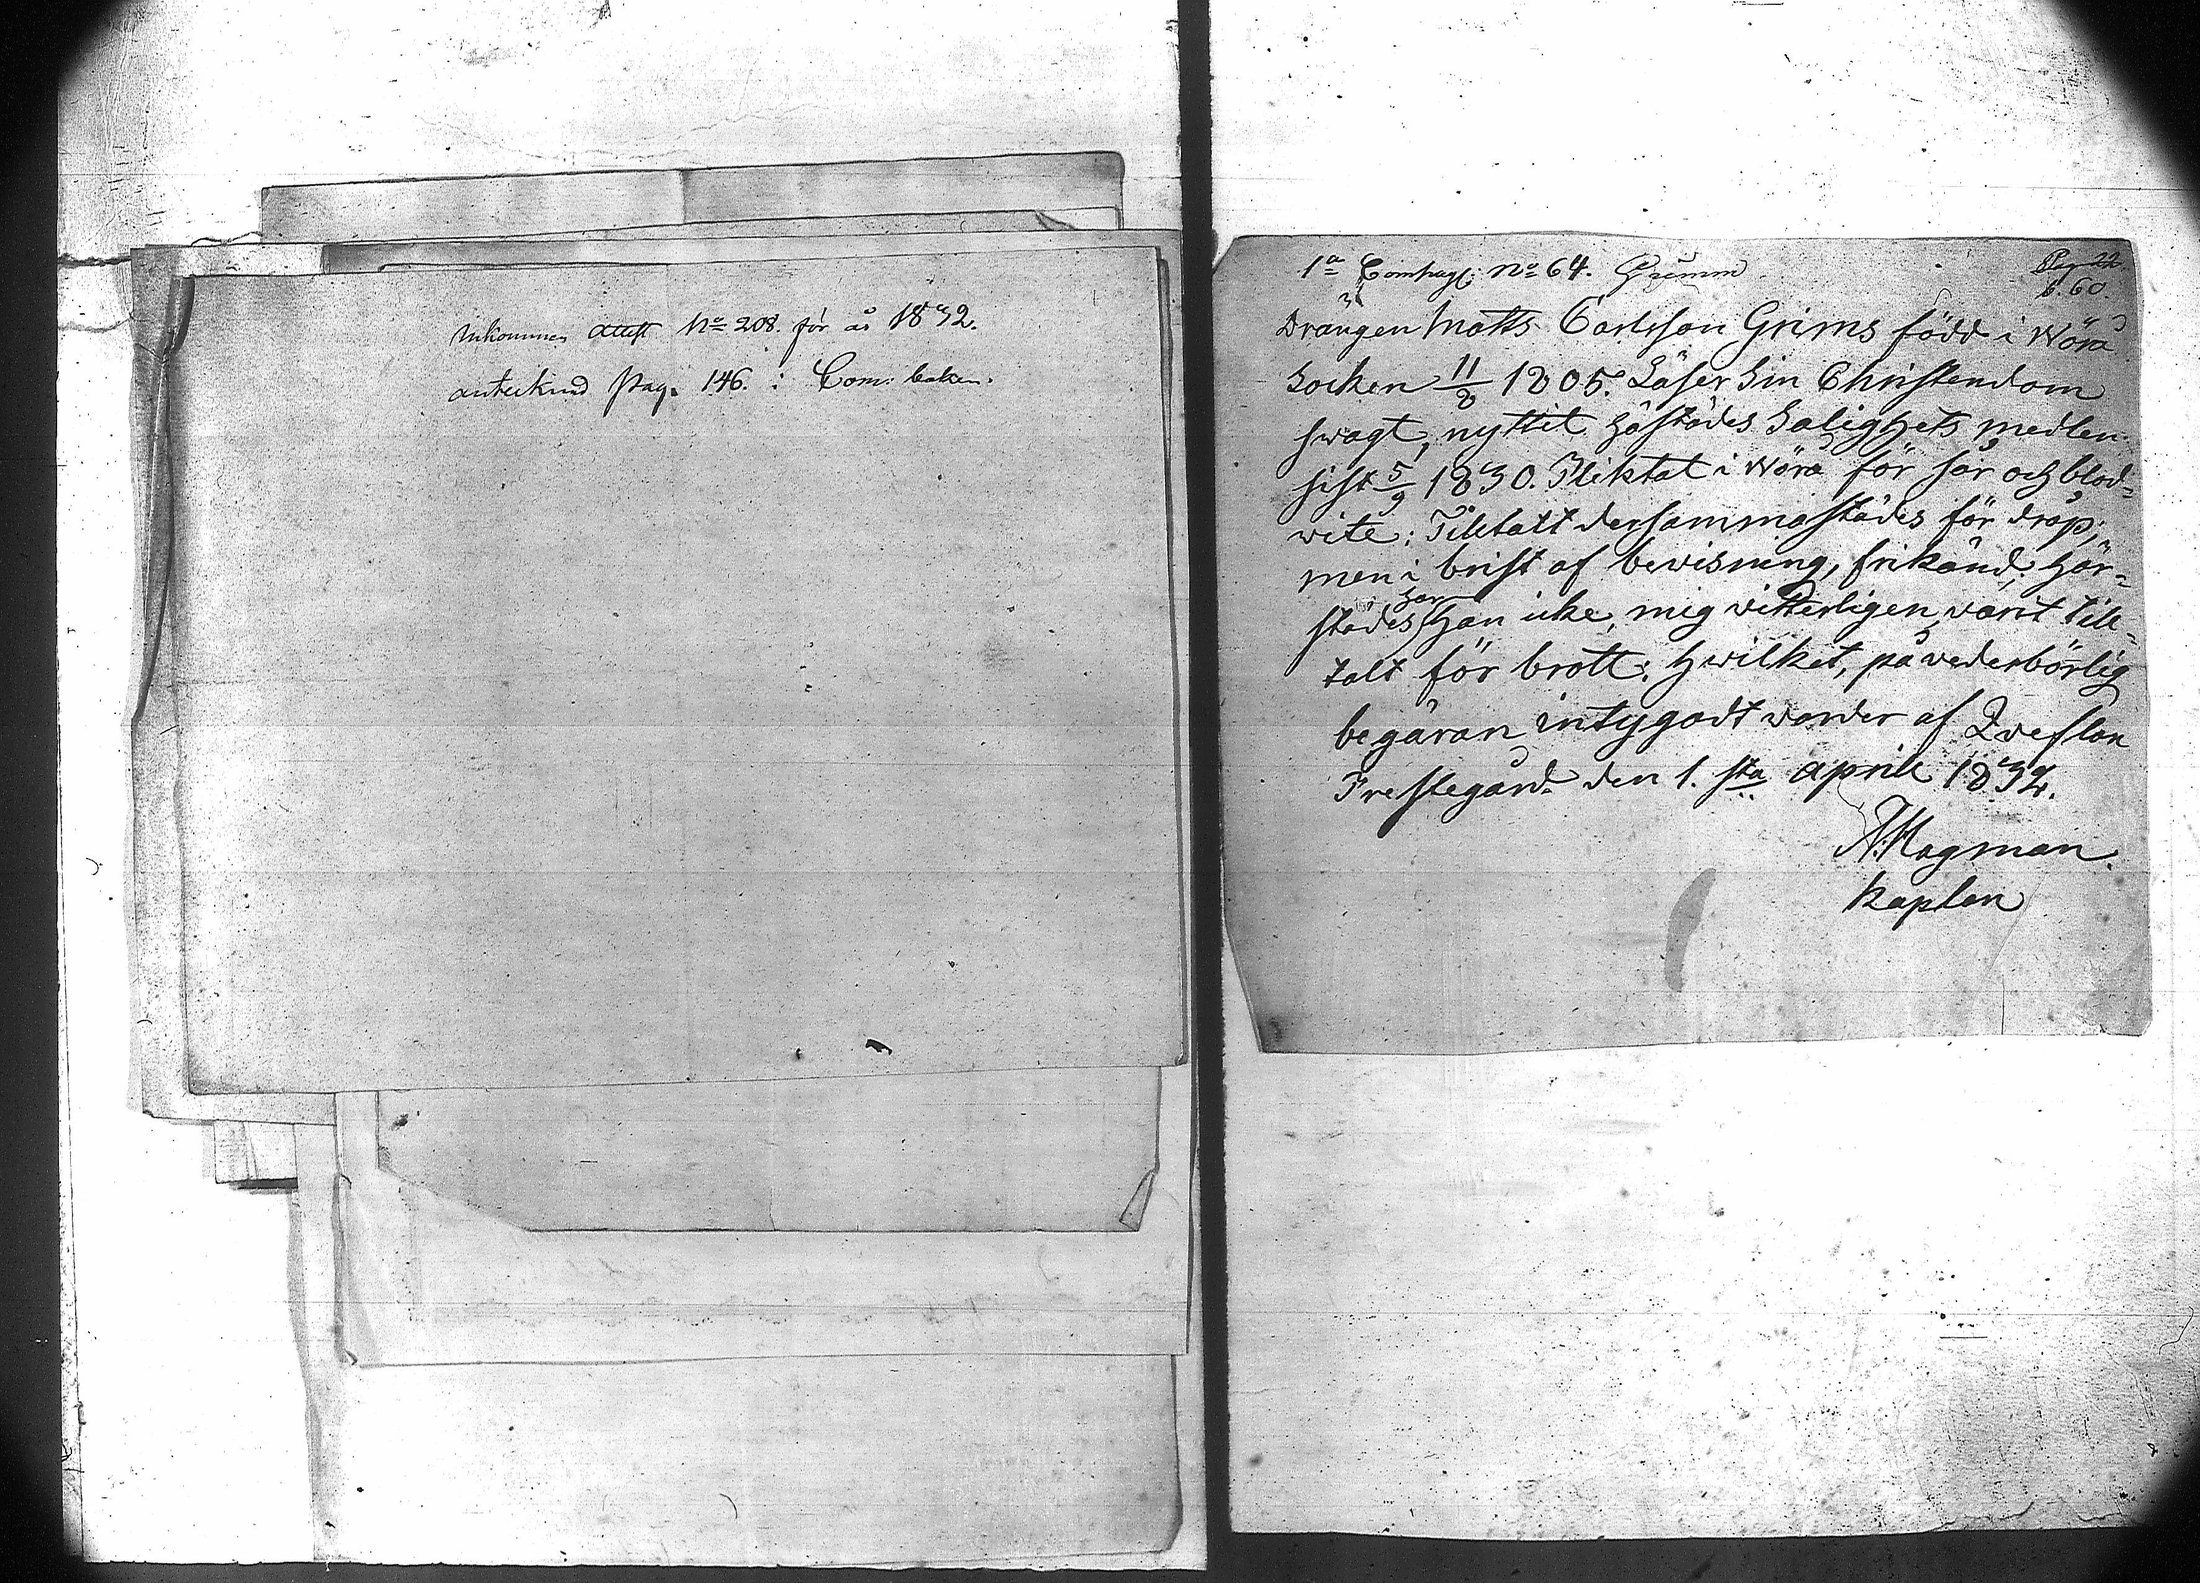 Inkommen attest No 208. för år 1832.
anteknad Pag. 146. i Com: boken.
1a Compagt: No 64. Grimm
Pag 22
b. 60.
Drängen Matts Carlsson Grims född i Wörå
Socken 11/8 1805. Läser Sin Christendom
swagt, nyttit hästädes Salighets medlen
sist 5/9 1830. Pliktat i Wörå för sår och blod=
wite: Tilltalt dersammastädes för dråp;
men i brist af bewisning, frikänd. Här=
städes har han icke, mig vitterligen, varit till=
talt för brott: Hwilket, på vederbörlig
begäran intygadt varder af Qveflax
Prestegård den 1. sta april 1832.
N. Hagman.
Kaplan